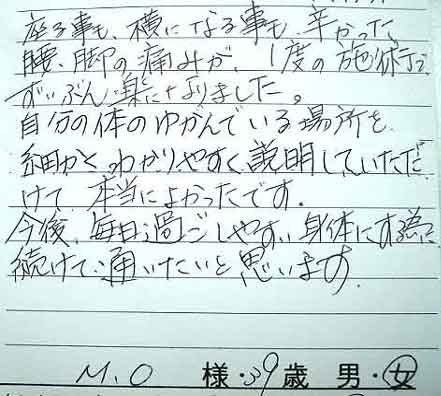 座る事も、横になる事も、辛かった
腰、脚の痛みが、1度の施術で
ずいぶん楽になりました。
自分の体のゆがんでいる場所を
細かく、わかりやすく説明していただ
けて、本当によかったです。
今後、毎日過ごしやすい身体にする為に
続けて通いたいと思います。
M.O 様・39歳 男・女